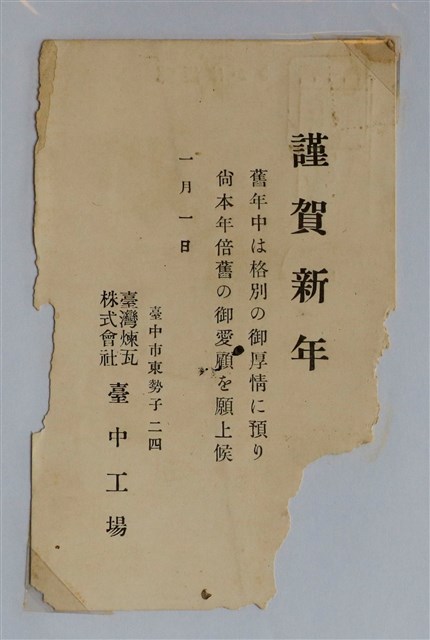 謹賀新年
舊年中は格別の御厚情に預り
尙本年倍舊の御愛顧を願上候
一月一日
臺中市東勢子二四
臺灣煉瓦
株式會社
臺中工場